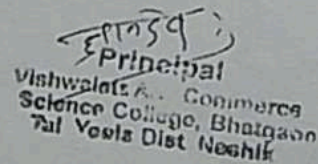 Principal
Vishwalata Commerce
Science College, Bhatgaon
Tal Yeola Dist Nashik